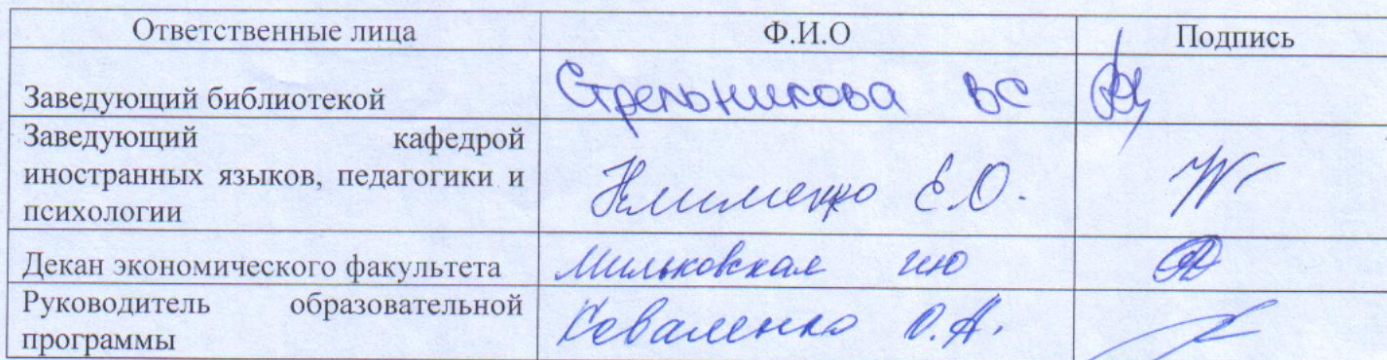 Ответственные лица Ф.И.О Подпись
Заведующий библиотекой Стрельникова ВС
Заведующий кафедрой
иностранных языков, педагогики и
психологии
Клименко Е.О.
Декан экономического факультета Мильковская ИЮ
Руководитель образовательной
программы
Коваленко О.А.